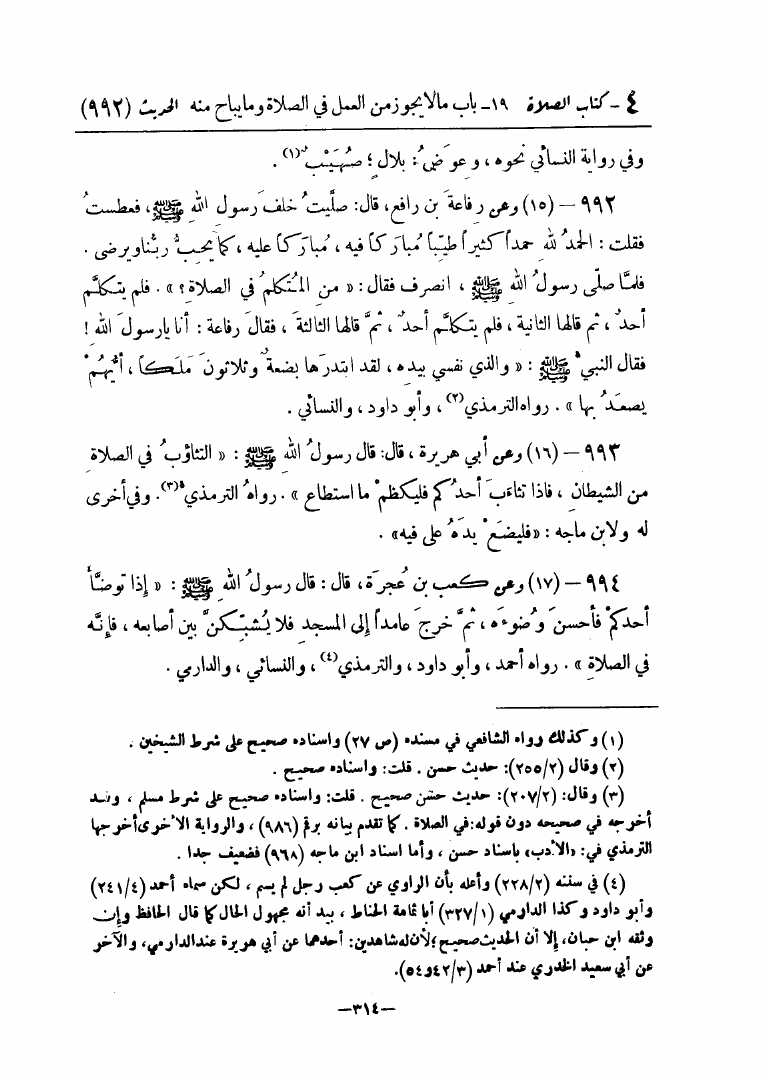 ٤ - كتاب الصلاة ١٩- باب مالايجوز من العمل في الصلاة ومايباح منه الحديث (٩٩٢)
وفي رواية النسائي نحوه ، وعوضُ : بلال ؛ صُهَيْب(١) .
٩٩٢ – (١٥) وعن رفاعةَ بن رافع، قال: صلَّيتُ خلفَ رسولِ اللهِ ﷺ، فعطستُ
فقلت : الحمدُ لله حمداً كثيراً طيّباً مُباركاً فيه ، مُبارَكاً عليه ، كما يحبُّ ربُّنا ويرضى .
فلمَّا صلّى رسولُ اللهِ ﷺ ، انصرف فقال : « من المُتكلمُ في الصلاةِ ؟ » . فلم يتكلَّم
أحدٌ ، ثم قالها الثانية ، فلم يتكلَّم أحدٌ ، ثمَّ قالها الثالثةَ ، فقالَ رفاعة : أنا يارسولَ الله !
فقال النبيُّ ﷺ : « والذي نفسي بيده ، لقد ابتدرَها بضعةٌ وثلاثونَ مَلَكاً ، أيُّهمْ
يصعَدُ بها » . رواه الترمذي(٢) ، وأبو داود ، والنسائي .
٩٩٣ – (١٦) وعن أبي هريرة ، قال: قال رسولُ اللهِ ﷺ : « التثاؤبُ في الصلاةِ
من الشيطانِ ، فاذا تثاءَبَ أحدُكم فليكظمْ ما استطاع » . رواهُ الترمذي(٣). وفي أخرى
له ولابن ماجه : «فليضَعْ يدَهُ على فيه» .
٩٩٤ – (١٧) وعن كعب بن عُجرَة ، قال : قال رسولُ الله ﷺ : « إذا توضَّأ
أحدكمْ فأحسنَ وُضوءَه ، ثمَّ خرجَ عامداً إلى المسجدِ فلا يُشبِّكنَّ بين أصابعه ، فإنَّه
في الصلاةِ » . رواه أحمد ، وأبو داود ، والترمذي(٤) ، والنسائي ، والدارمي .
(١) وكذلك رواه الشافعي في مسنده (ص ٢٧) واسناده صحيح على شرط الشيخين .
(٢) وقال (٢٥٥/٢): حديث حسن . قلت: واسناده صحيح .
(٣) وقال: (٢٠٧/٢): حديث حسن صحيح . قلت: واسناده صحيح على شرط مسلم ، وقد
أخرجه في صحيحه دون قوله:في الصلاة . كما تقدم بيانه برقم (٩٨٦) ، والرواية الأخرى أخرجها
الترمذي في: «الأدب» باسناد حسن ، وأما اسناد ابن ماجه (٩٦٨) فضعيف جدا .
(٤) في سننه (٢٢٨/٢) وأعله بأن الراوي عن كعب رجل لم يسم ، لكن سماه أحمد (٢٤١/٤)
وأبو داود وكذا الدارمي (٣٢٧/١) أبا ثمامة الحناط ، بيد أنه مجهول الحال كما قال الحافظ وإن
وثقه ابن حبان، إلا أن الحديث صحيح؛ لأن له شاهدين: أحدهما عن أبي هريرة عند الدارمي، والآخر
عن أبي سعيد الخدري عند أحمد (٤٢/٣و٥٤).
—٣١٤—